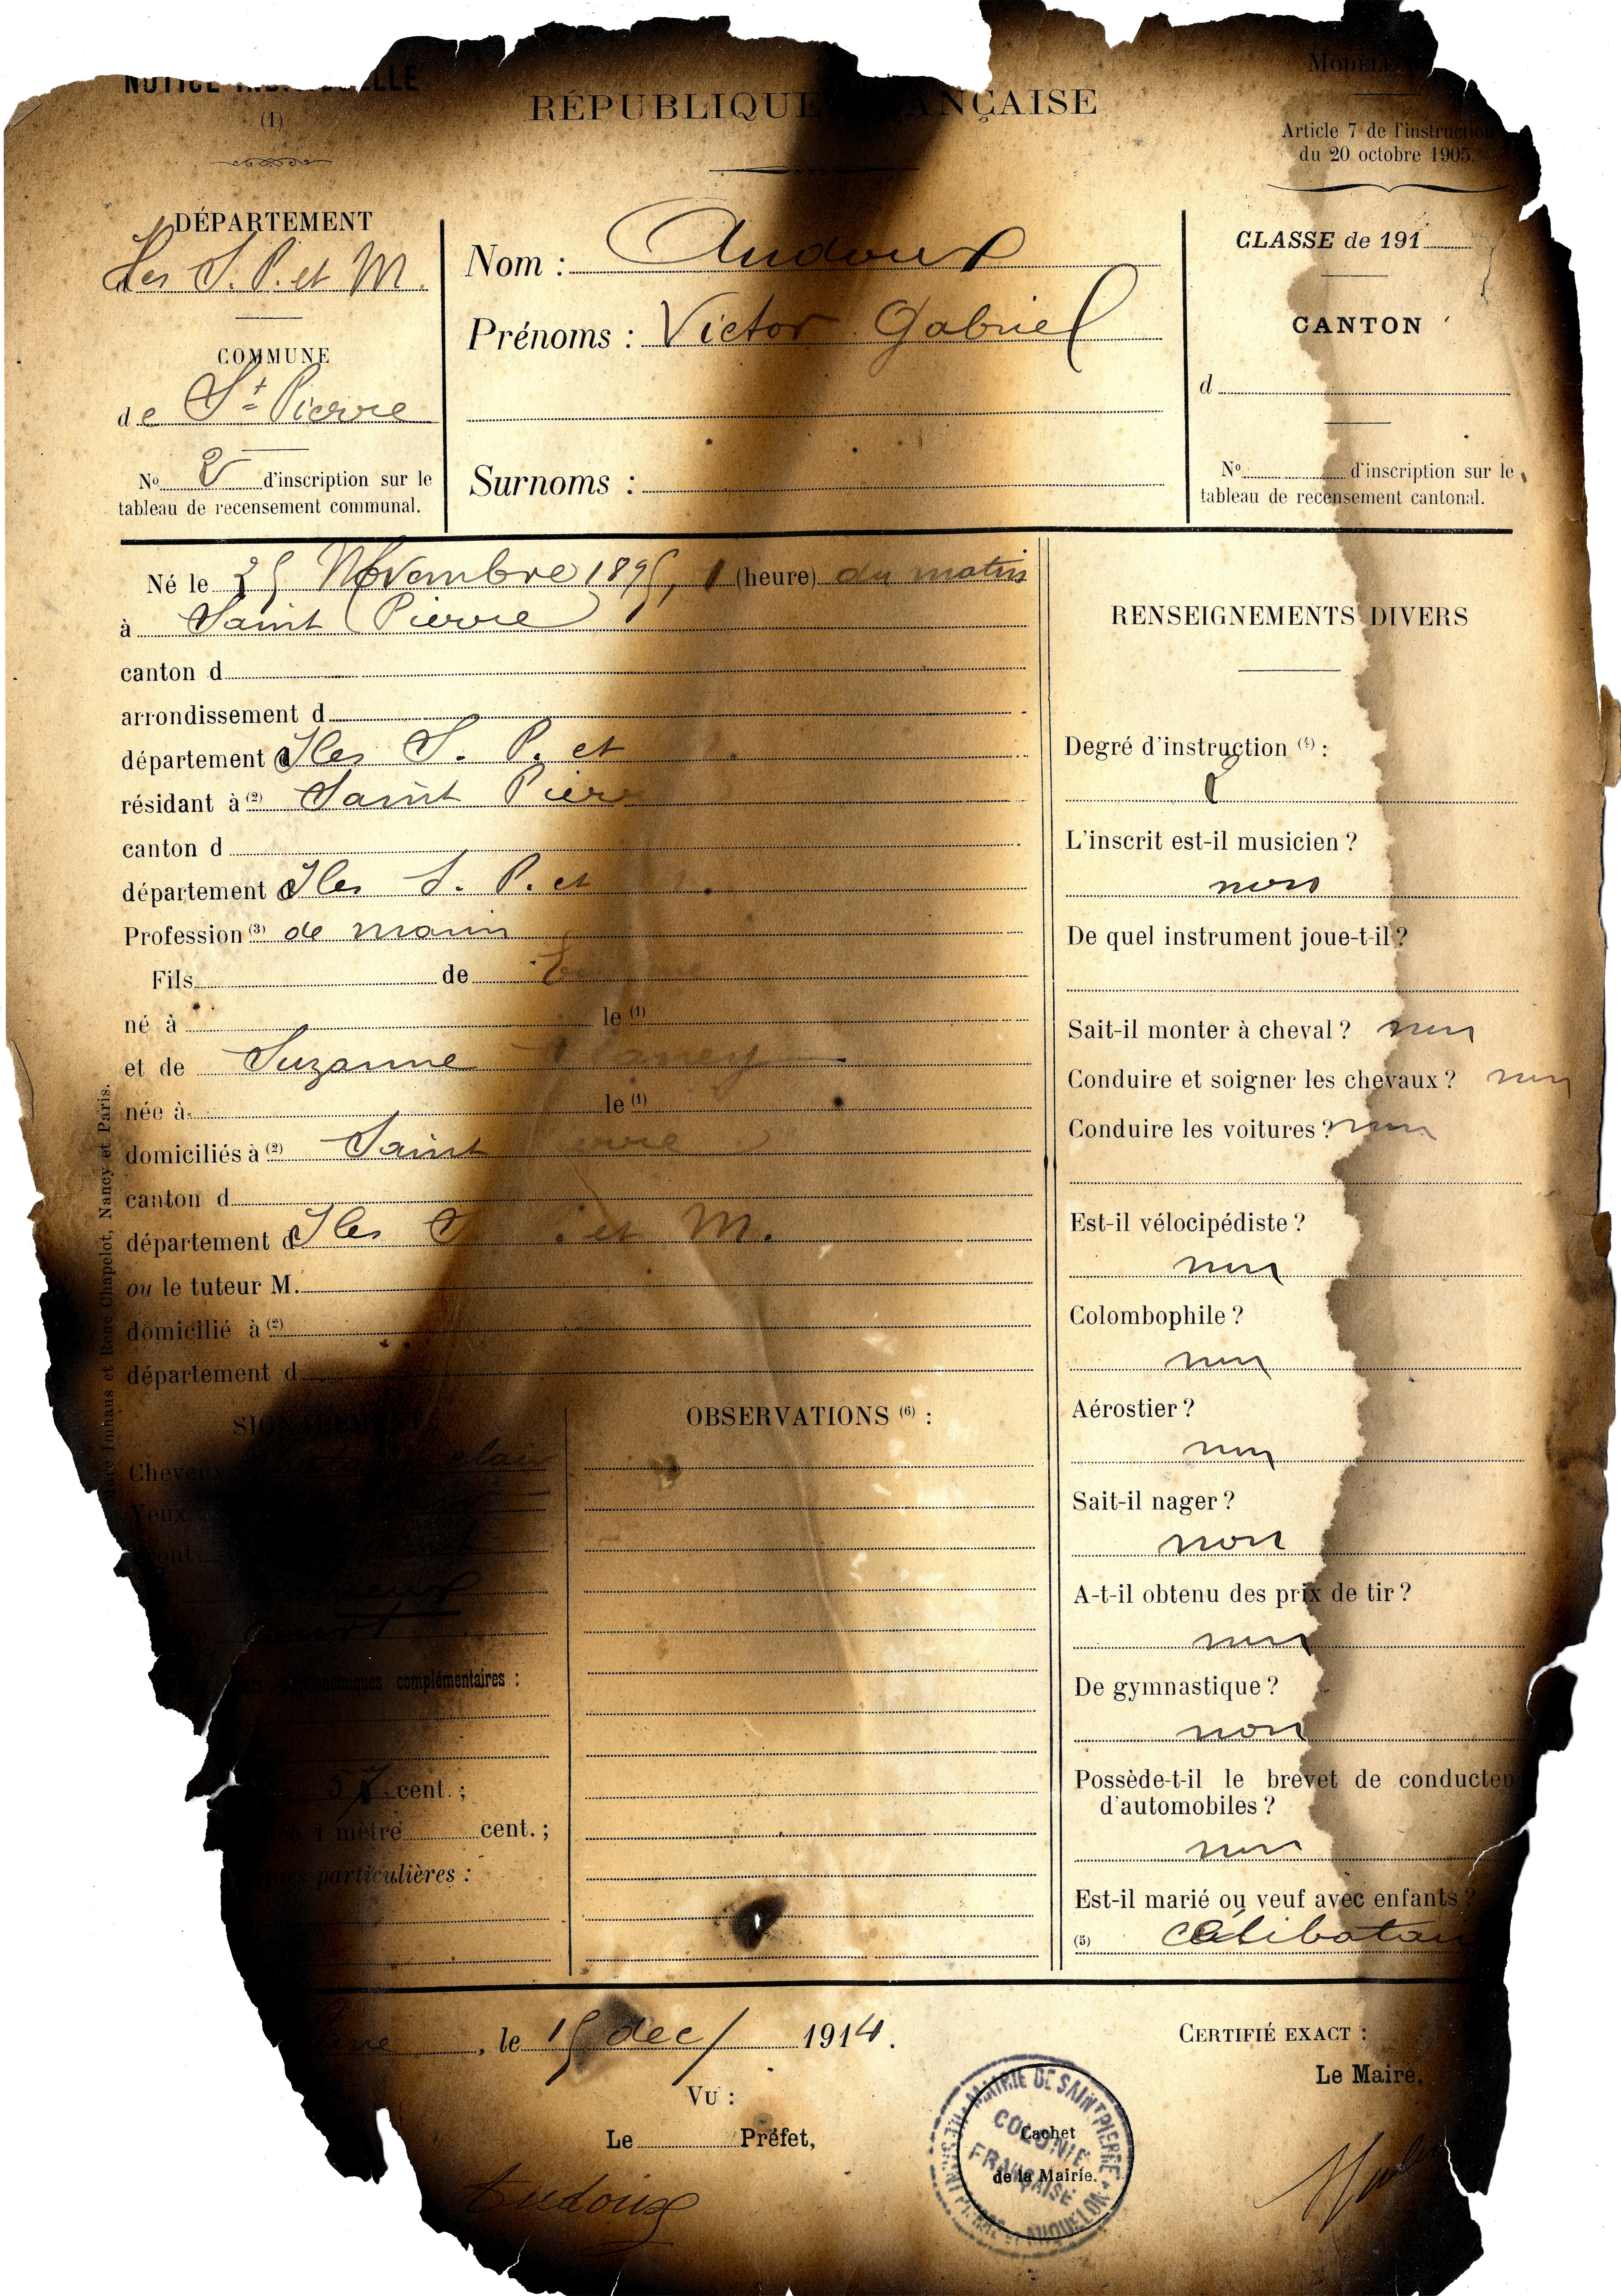 NOTICE
(1)
RÉPUBLIQUE
MODÈLE
Article 7 de l'instruction
du 20 octobre 1905.
DÉPARTEMENT
des S. P. et M.
COMMUNE
de St Pierre
No 2 d'inscription sur le
tableau de recensement communal.
Nom : Audoux
Prénoms : Victor Gabriel
Surnoms :
CLASSE de 191
CANTON
d
No d'inscription sur le
tableau de recensement cantonal.
Né le 25 Novembre 1895, 1 (heure) du matin
à Saint Pierre
canton d
arrondissement d
département d Iles S. P. et
résidant à (2) Saint Pierr
canton d
département d Iles S. P. et
Profession (3) de marin
Fils de
né à le (1)
et de Suzanne
née à le (1)
domiciliés à (2) Saint
canton d
département d Iles S et M.
ou le tuteur M.
domicilié à (2)
département d
Imhaus et René Chapelot, Nancy et Paris.
Cheveux clair
Yeux
court
complémentaires :
57 cent. ;
1 mètre cent. ;
particulières :
OBSERVATIONS (6) :
RENSEIGNEMENTS DIVERS
Degré d'instruction (4) :
L'inscrit est-il musicien ?
non
De quel instrument joue-t-il ?
Sait-il monter à cheval ? non
Conduire et soigner les chevaux ? non
Conduire les voitures ? non
Est-il vélocipédiste ?
non
Colombophile ?
non
Aérostier ?
non
Sait-il nager ?
non
A-t-il obtenu des prix de tir ?
non
De gymnastique ?
non
Possède-t-il le brevet de conducteu
d'automobiles ?
non
Est-il marié ou veuf avec enfants ?
(5) Célibatai
, le 15 dec/ 1914.
VU :
Le Préfet,
Audoux
MAIRIE DE SAINT PIERRE
COLONIE
FRANÇAISE
Cachet
de la Mairie.
CERTIFIÉ EXACT :
Le Maire,